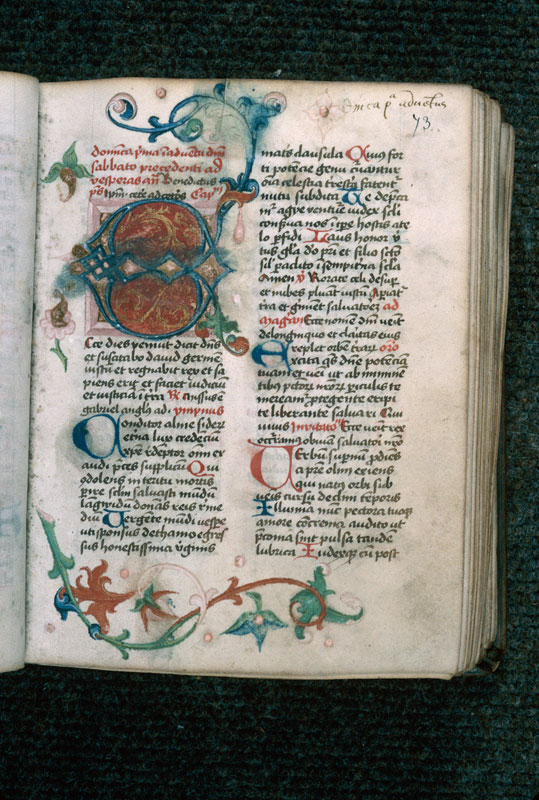 d̄nica pª aduētus
73.
domīca p̄ma ī aduētu dn̄i
sabbato precedenti ad
vesperas añ Benedictus
ps ip̄m cete ad ceteros Capᵐ
Ecce dies veniūt dicit dn̄s
et suscitabo dauid germē
iustū et regnabit rex et sa
piens erit et faciet iudiciū
et iusticiā ī t̄ra R̃ Missus ē
gabriel angl̄us ad ympnus
Conditor alme siderū
eterna lux credenciū
xp̄e redēptor om̄ ex
audi p̄ces supplicū Qui
ꝯdolens interitu mortis
perire sclm̄ saluasti mūdū
lāgwidū donās reis reme
diū Vergente mūdi vespe
uti sponsus de thamo egres
sus honestissima v̄ginis
matris clausula Cuius for
ti potēcie genu curuantur
oīa celestia t̄restria fatent̄
nutu subdita Te depca
mr̄ agye ventur̄e iudex scli
conserua nos ī tp̄e hostis a te
lo p̄fidi Laus honor v̄
tus gl̄a deo pr̄i et filio scto
sīl paraclito ī sempit̄na scl̄a
Amen v̄ Rorate celi desup̄
et nubes pluāt iustū Apiat̄
terra et gīnet saluatorē ad
magᵗ añ Ecce nomen dn̄i venit
de longinquo et claritas eius
replet orbē t̄rarū oro
Excita qs̄ dn̄e potēciā
tuam et veni ut ab īminē
tibus pctōrū nr̄orū piculis te
mereamr̄ p̄tegente eripi
te liberante saluari Qui
viuis Inuitatoᵐ Ecce venit rex
occurram̄us obuiam saluatori nr̄o
Uerbum supernū ꝓdies
a patre olim exiens
qui natus orbi sub
ueis cursu decliui temporis
Illumīa nūc pectora tuoqꝫ
amore cōcrema audito ut
p̄conia sint pulsa tandē
lubrica Iudexqꝫ cū post